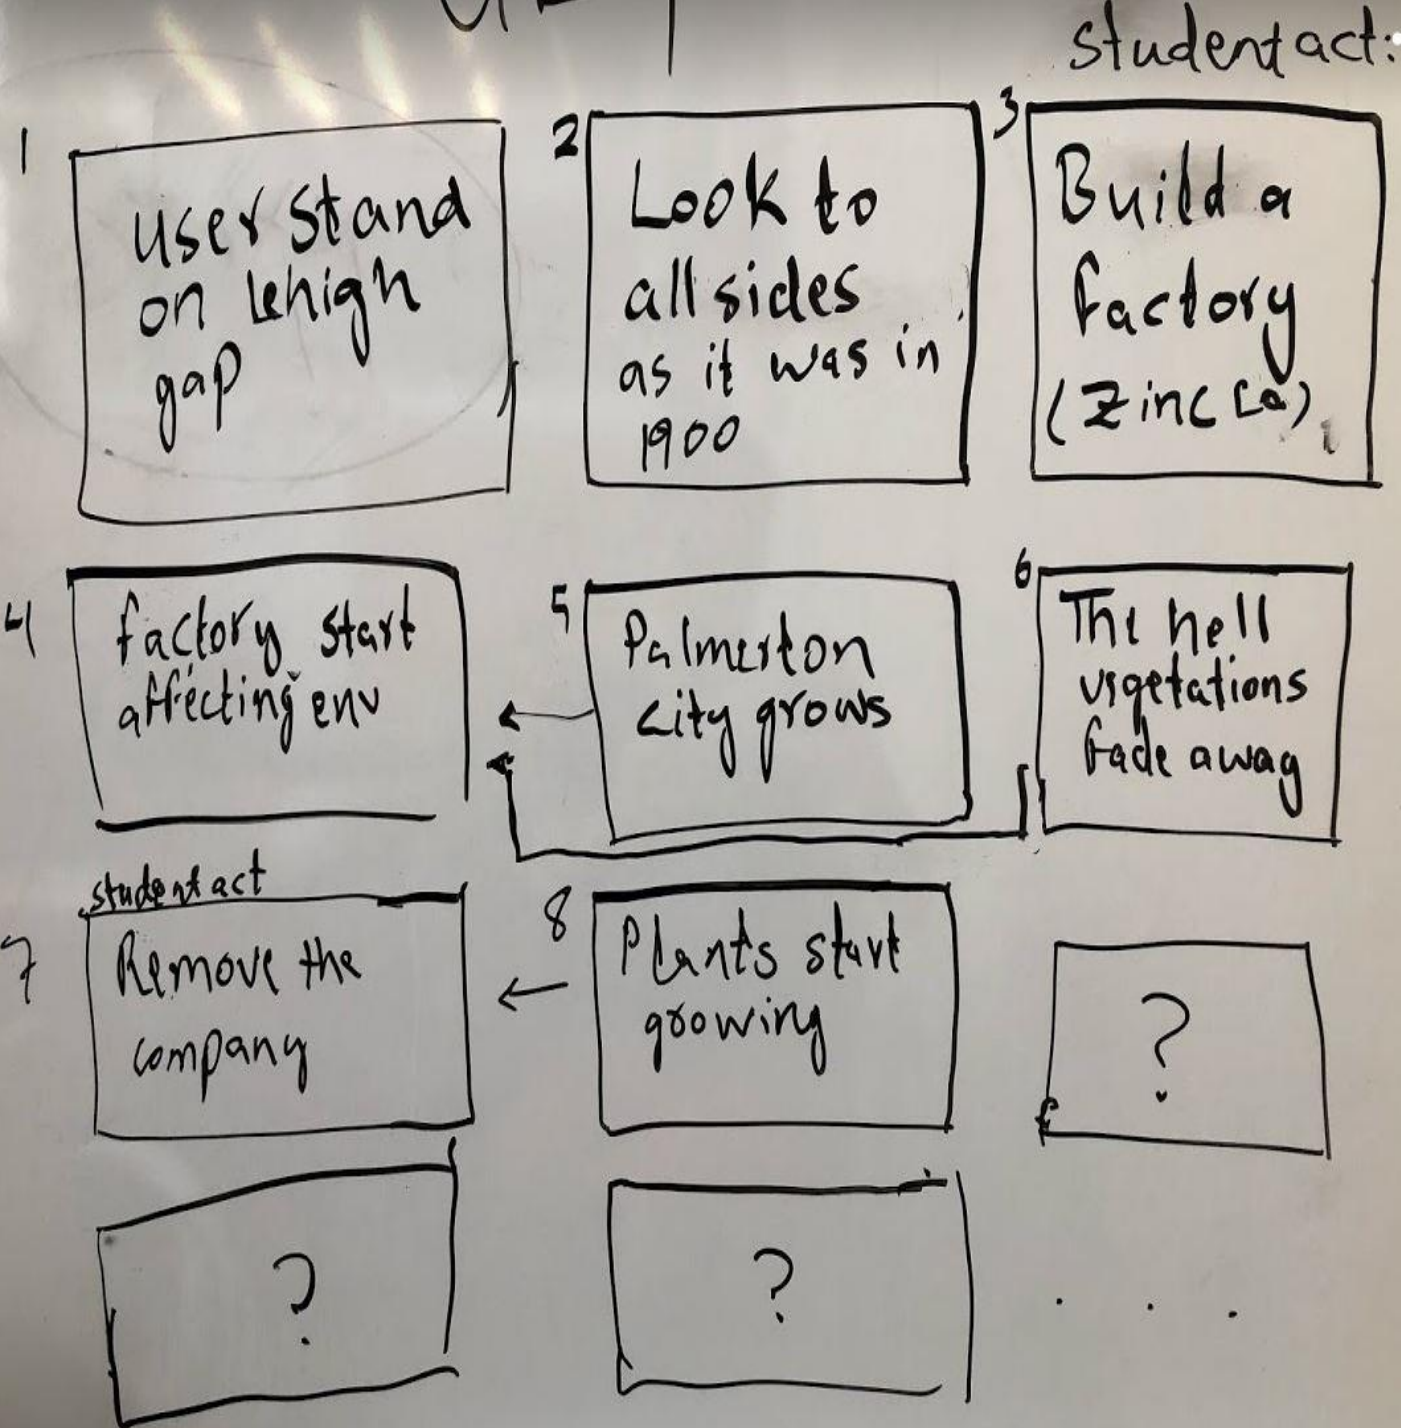 student act:
1
user stand
on Lehigh
gap
2
Look to
all sides
as it was in
1900
3
Build a
factory
(Zinc Co)
4
factory start
affecting env
5
Palmerton
city grows
6
The hell
vigetations
fade away
student act
7
Remove the
company
8
Plants start
growing
?
?
?
. . .